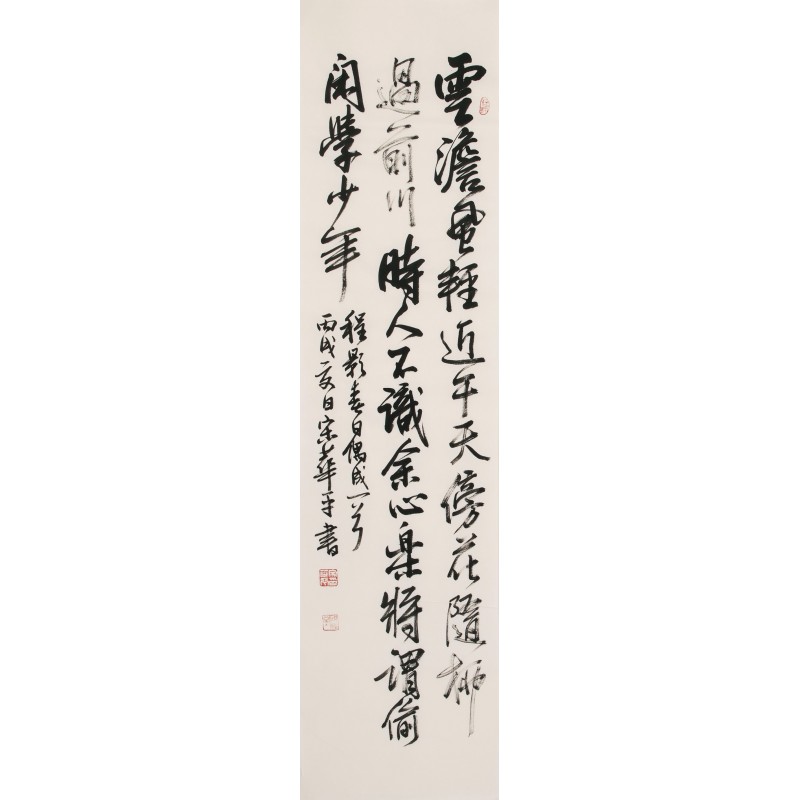 雲澹風輕近午天傍花隨柳
過前川時人不識余心樂將謂偷
閑學少年
程影春日偶成一首
丙戌夏日宋華平書